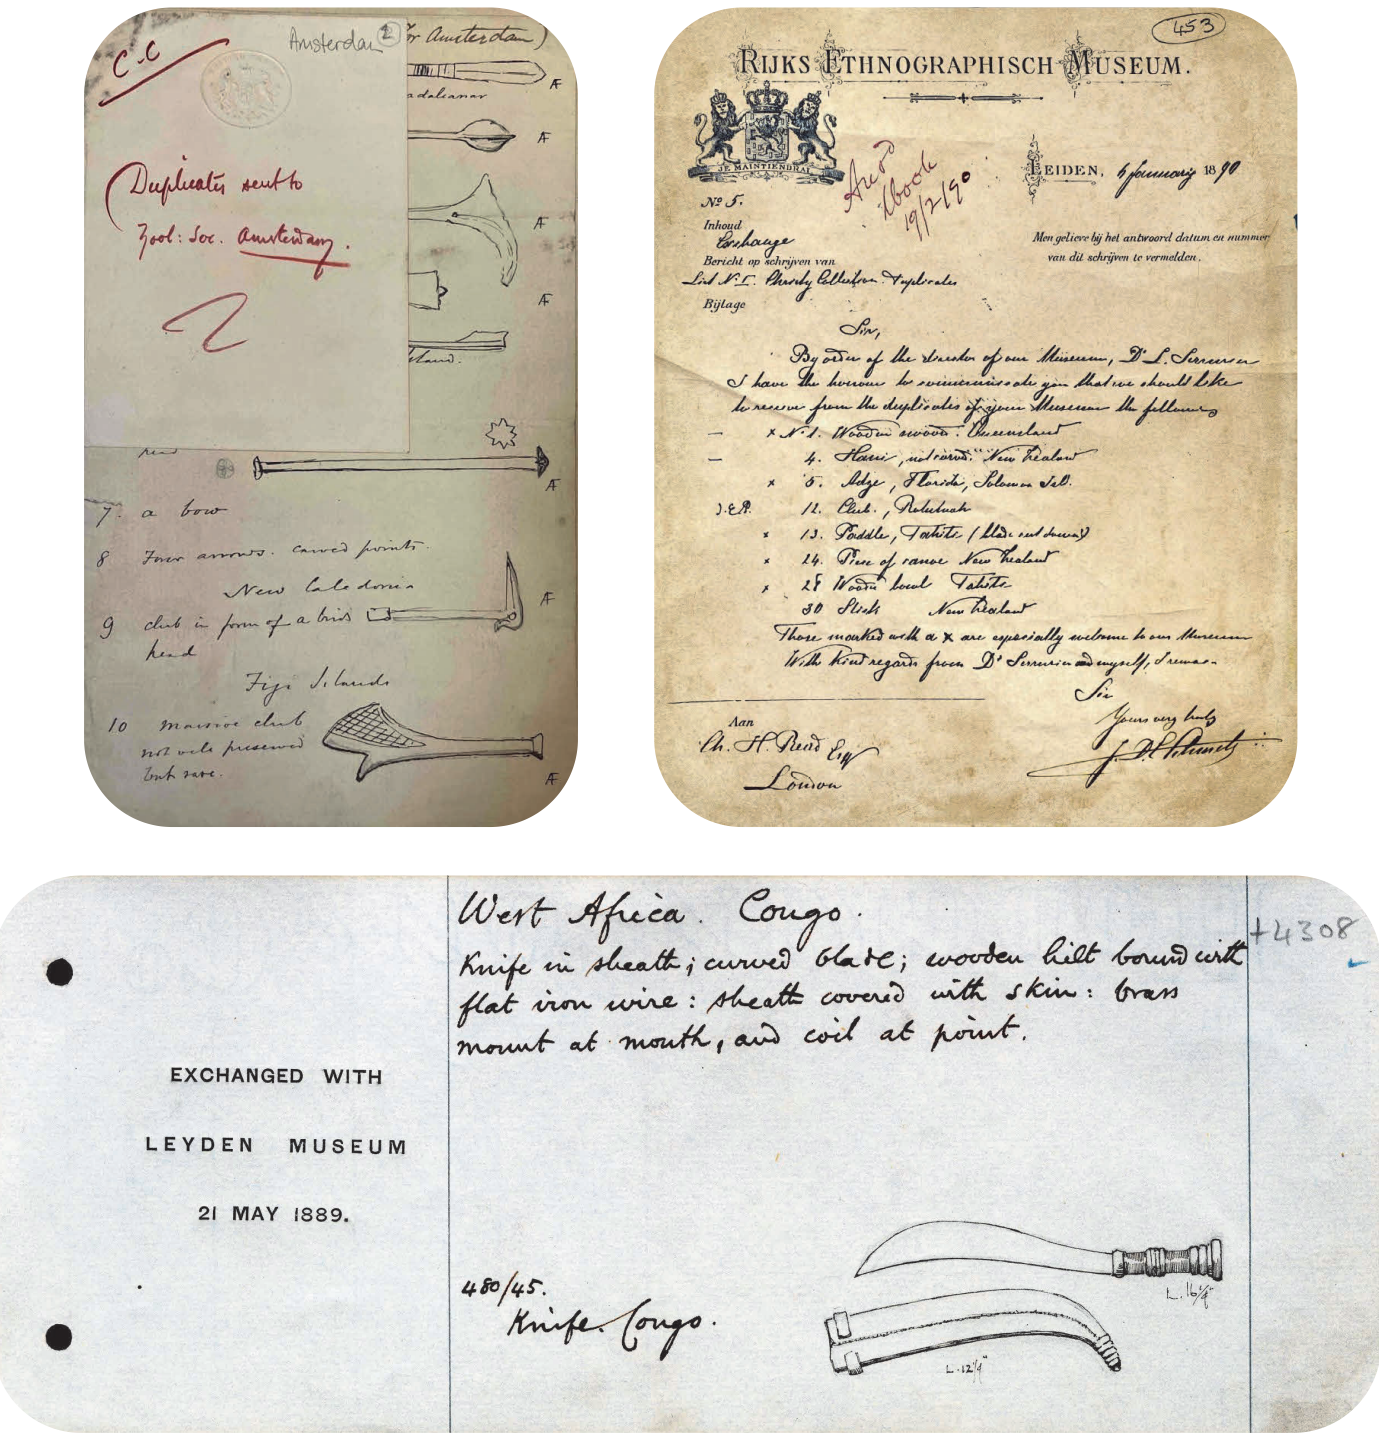 C.C
Amsterdam 2 for Amsterdam)
Æ
Æ
Duplicates sent to
Zool: Soc. Amsterdam.
Æ
Æ
2
Island.
head
Æ
7. a bow
8 Four arrows. carved points.
New Caledonia
9 club in form of a birds
head
Æ
Fiji Islands
10 massive club
not well preserved
but rare.
Æ
453
RIJKS ETHNOGRAPHISCH MUSEUM.
JE MAINTIENDRAI
LEIDEN, 6 January 1890
19/2/90
No 5.
Inhoud
Exchange
Men gelieve bij het antwoord datum en nummer
van dit schrijven te vermelden.
Bericht op schrijven van
List No. I. Christy Collection. Duplicates
Bijlage
Sir,
By order of the director of our Museum, Dr L. Serrurier
I have the honour to communicate you that we should like
to receive from the duplicates of your Museum the following
— x No 1. Wooden sword. Queensland
— 4. Hani, not carved. New Zealand
x 5. Adze, Florida, Solomon Isl.
12. Club, Rotumah
x 13. Paddle, Tahiti
x 24. Piece of canoe New Zealand
x 28 Wooden bowl Tahiti
30 Stick New Zealand
Those marked with a x are especially welcome to our Museum
With kind regards from Dr Serrurier and myself, I remain
Sir
Yours very truly
Aan
Ch. H. Read Esq
J. D. E. Schmeltz
London
West Africa. Congo.
+4308
Knife in sheath; curved blade; wooden hilt bound with
flat iron wire: sheath covered with skin: brass
mount at mouth, and coil at point.
EXCHANGED WITH
LEYDEN MUSEUM
21 MAY 1889.
480/45.
Knife. Congo.
L. 16¼"
L. 12¼"